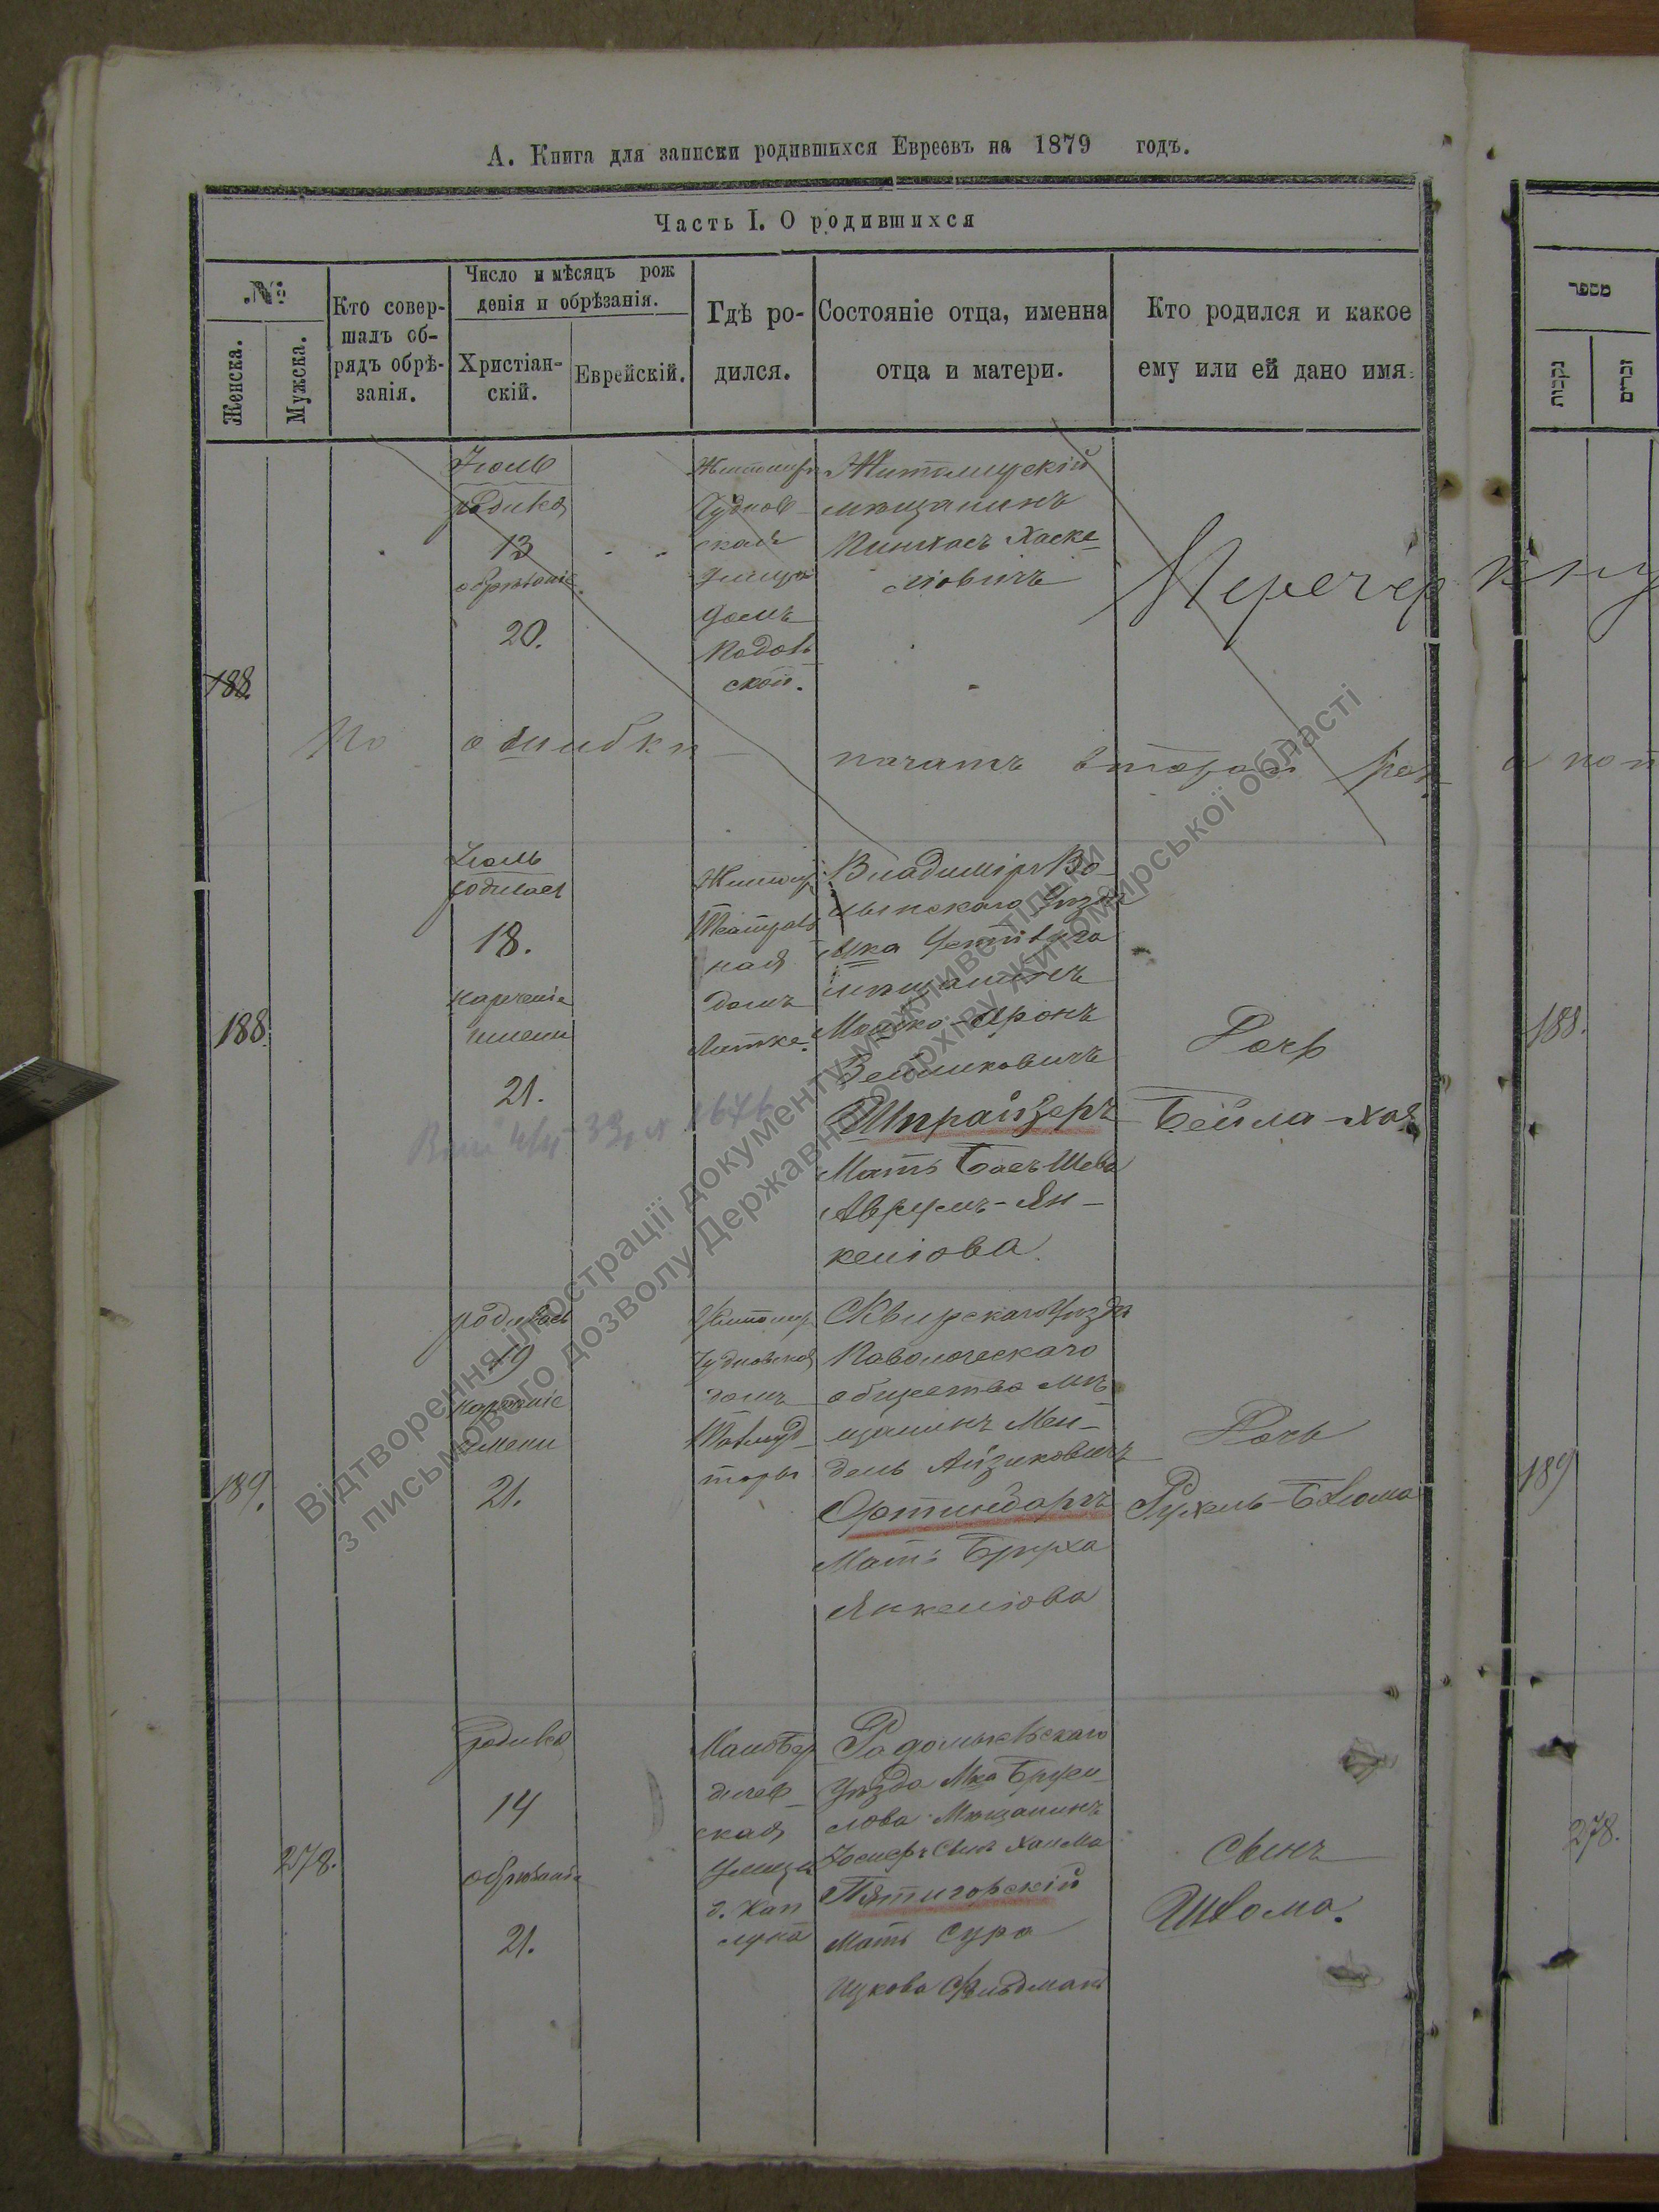 А. Книга для записки родившихся Евреевъ на 1879 годъ.
Часть I. О родившихся
№
Женска.
Мужска.
Кто совер-
шалъ об-
рядъ обрѣ-
занія.
Число и мѣсяцъ рож
денія и обрѣзанія.
Христіан-
скій.
Еврейскій.
Гдѣ ро-
дился.
Состояніе отца, именна
отца и матери.
Кто родился и какое
ему или ей дано имя.
מספר
נקבות
זכרים
188.
Іюль
родился
13
обрѣзаніе
20.
Житомиръ
Чуднов
ская
улица
домъ
скои.
Житомирскій
мѣщанинъ
Пинхасъ Хаске
ліовичъ
Перечеркну
По ошибки начатъ второй раз а поп
188.
Іюль
родилась
18.
нареченіе
имени
21.
Житомир
Театраль
ная
домъ
Владимір Во-
лынскаго уѣзда
М-ка Устилуга
мѣщанинъ
Мошко-Аронъ
Зейликовичъ
Штрайзеръ
Мать Басъ Шева
Аврумъ-Ян-
келіова
Дочь
Бейла-Хая
188.
189.
родилась
19
нареченіе
имени
21.
Житомир
Чудновская
домъ
Талмуд
торы
Сквирскаго уѣзда
Паволоческаго
общества мѣ
щанинъ Мен-
дель Айзиковичъ
Мать Бруха
Янкеліова
Дочь
Рухель-Блюма
189
278.
родился
14
обрѣзаніе
21.
Мало Бер
дичев
ская
улица
д. Кап
луна
Радомысльскаго
уѣзда М-ка Бруси
лова Мѣщанинъ
Іосифъ Сынъ Хаима
Пятигорскій
Мать Сура
Ицкова Фельдманъ
Сынъ
Шлома.
278.
Відтворення ілюстрації документу можливе тільки
з письмового дозволу Державного архіву Житомирської області